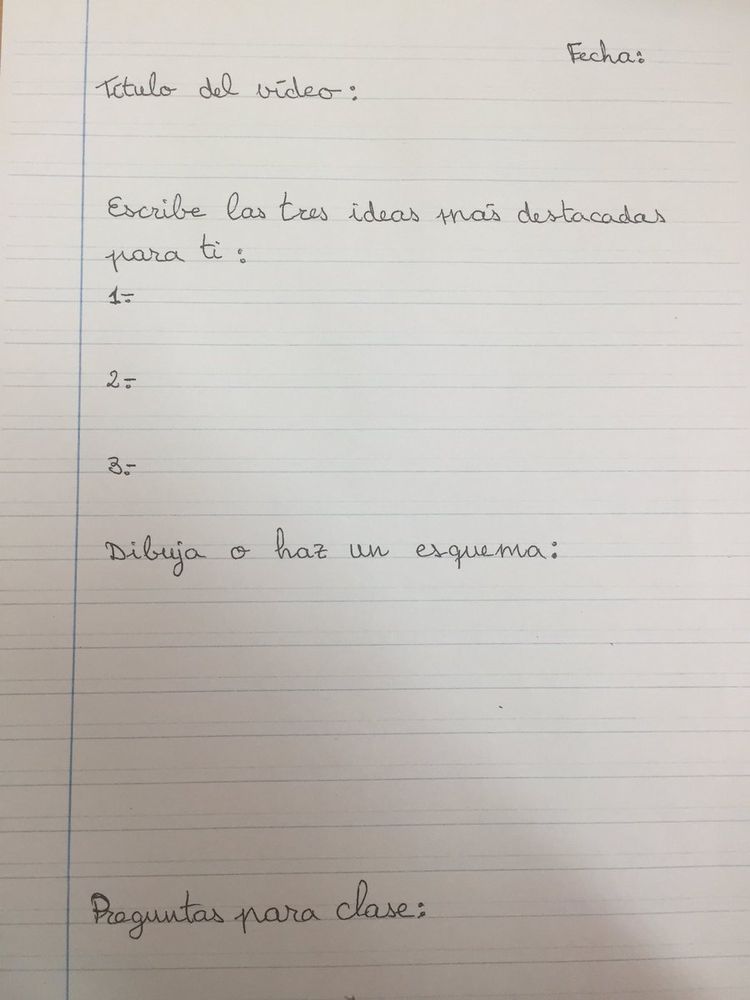 Fecha:
Título del vídeo:
Escribe las tres ideas más destacadas
para ti:
1.-
2.-
3.-
Dibuja o haz un esquema:
Preguntas para clase: